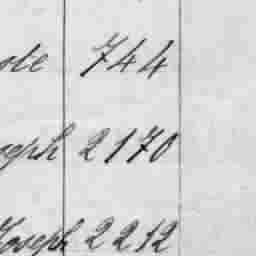 ote 744
oseph 2170
Joseph 2212